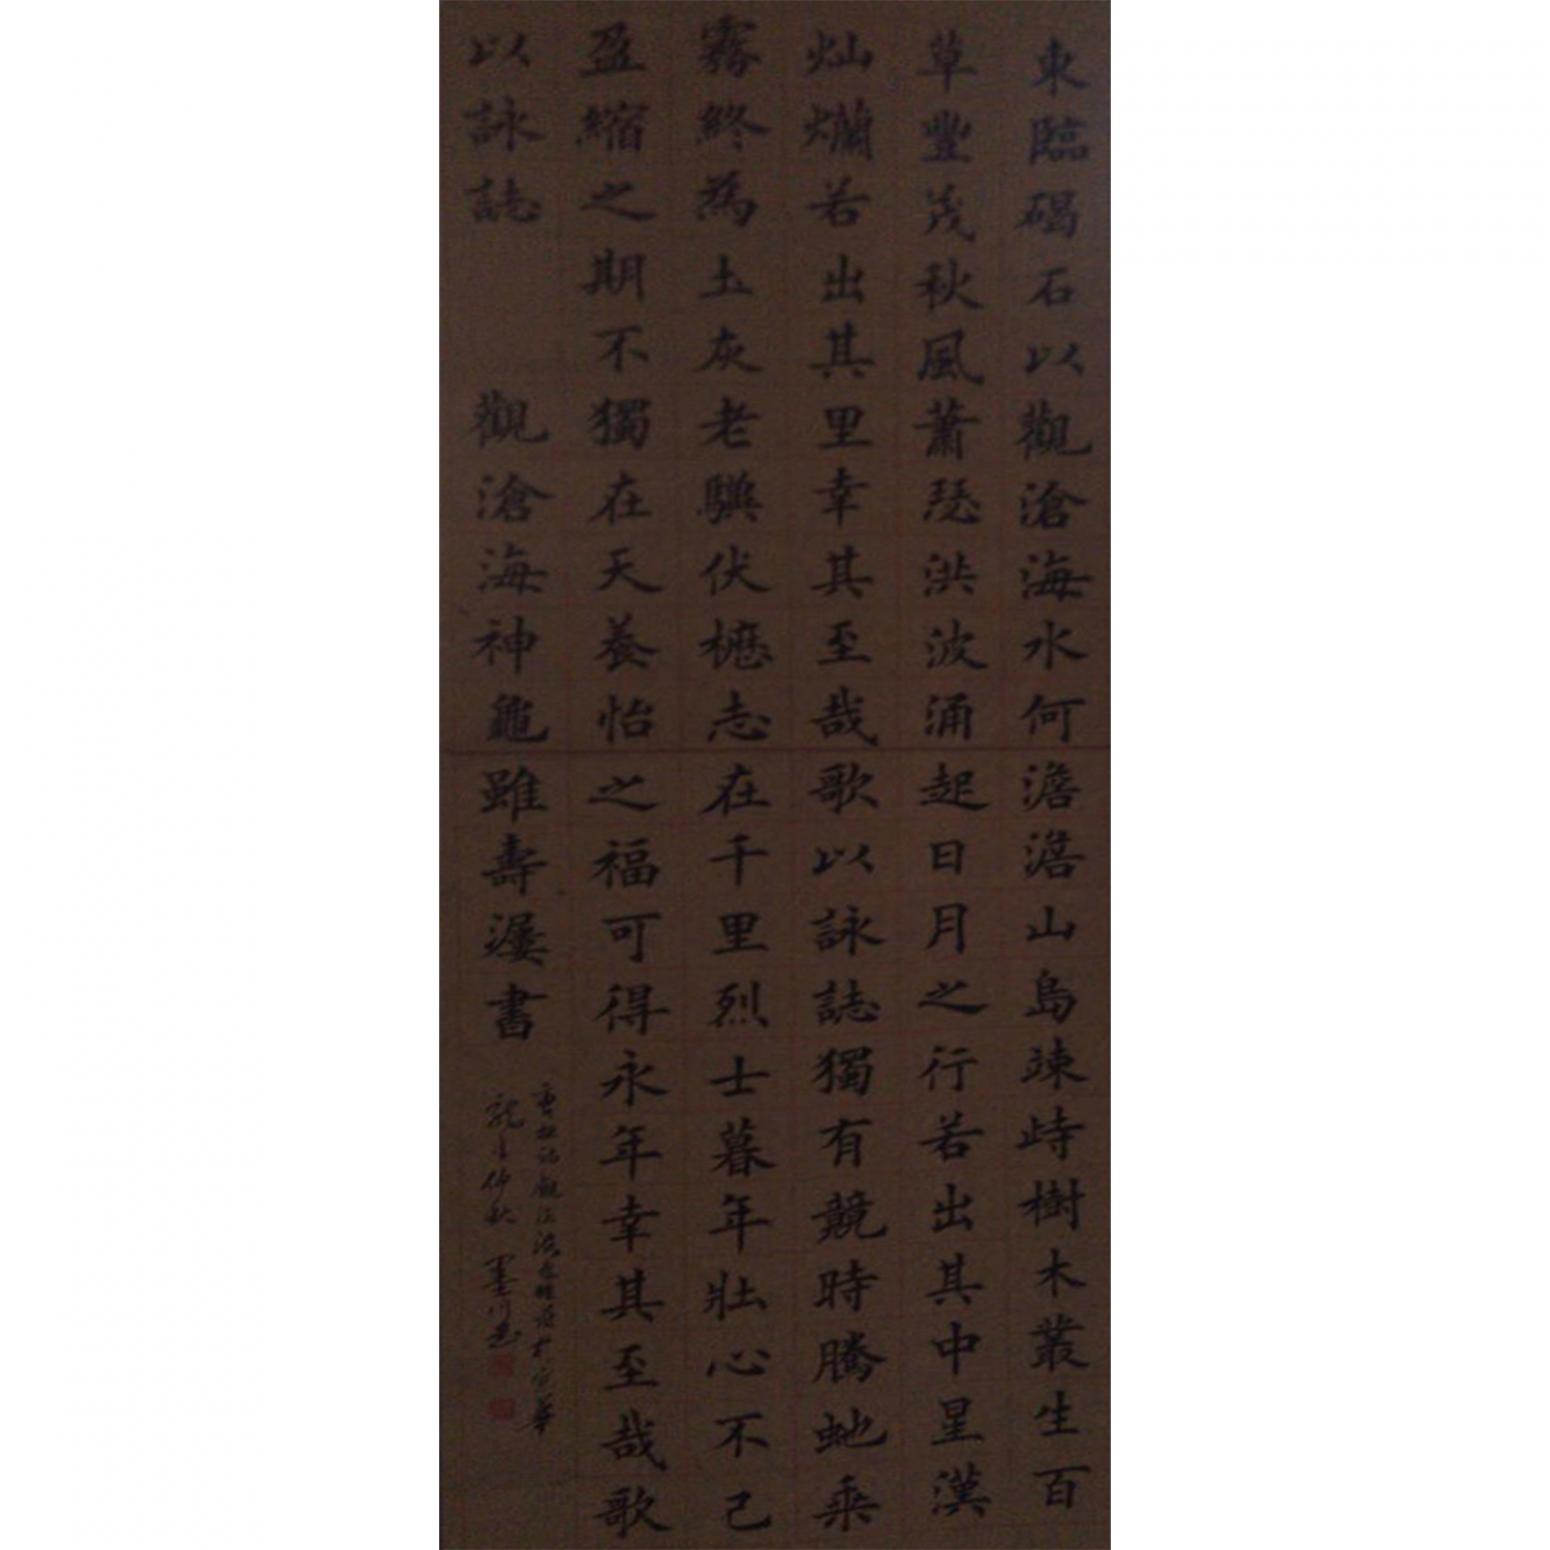 東臨碣石以觀滄海水何澹澹山島竦峙樹木叢生百
草豐茂秋風蕭瑟洪波涌起日月之行若出其中星漢
灿爛若出其里幸其至哉歌以詠誌獨有競時腾虵乘
霧終為土灰老驥伏櫪志在千里烈士暮年壯心不已
盈縮之期不獨在天養怡之福可得永年幸其至哉歌
以詠誌 觀滄海神龜雖壽 書
龍年仲秋